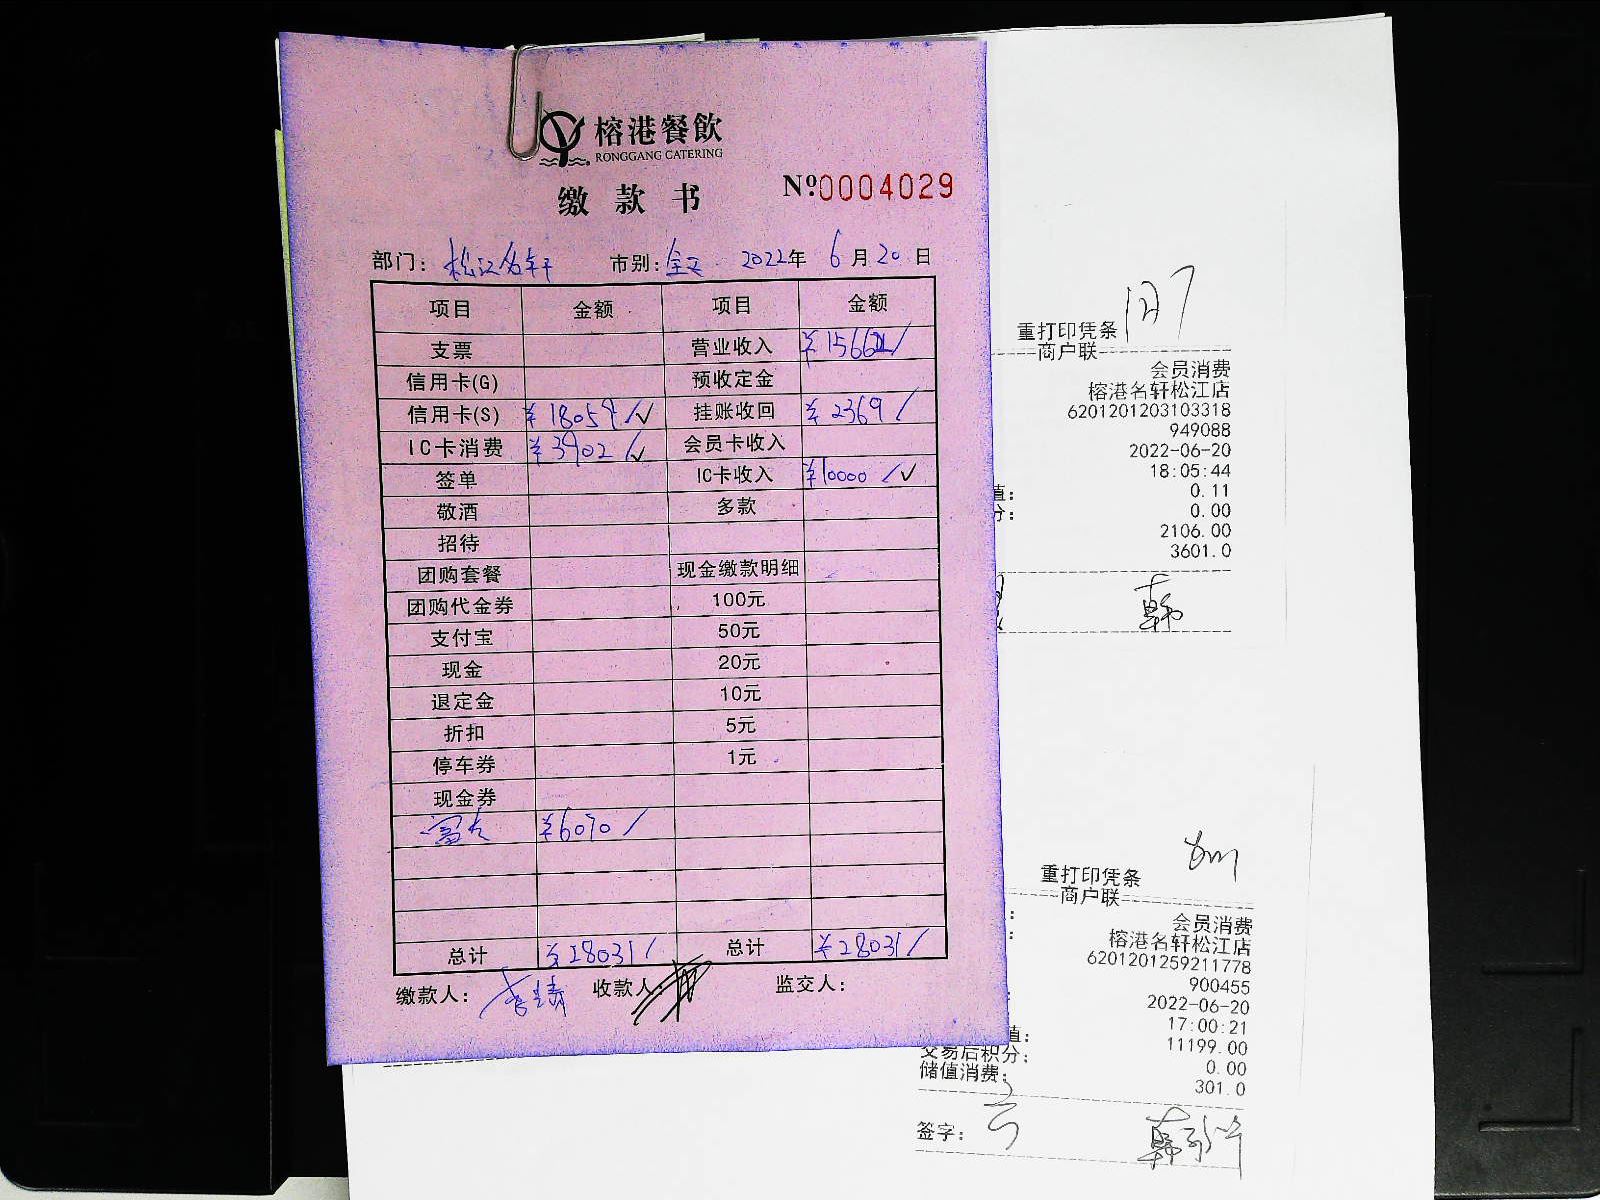 榕港餐飲
RONGGANG CATERING
缴款书 №0004029
部门：松江名轩 市别：全天 2022年 6月20日
项目 金额 项目 金额
支票 营业收入 ¥15662/
信用卡(G) 预收定金
信用卡(S) ¥18059/✓ 挂账收回 ¥2369/
IC卡消费 ¥3902/✓ 会员卡收入
签单 IC卡收入 ¥10000/✓
敬酒 多款
招待
团购套餐 现金缴款明细
团购代金券 100元
支付宝 50元
现金 20元
退定金 10元
折扣 5元
停车券 1元
现金券
富友 ¥6070/
总计 ¥28031/ 总计 ¥28031/
缴款人： 收款人： 监交人：
重打印凭条
商户联
会员消费
榕港名轩松江店
6201201203103318
949088
2022-06-20
18:05:44
值： 0.11
分： 0.00
2106.00
3601.0
韩
重打印凭条
商户联
会员消费
榕港名轩松江店
6201201259211778
900455
2022-06-20
17:00:21
值： 11199.00
交易后积分： 0.00
储值消费： 301.0
签字：